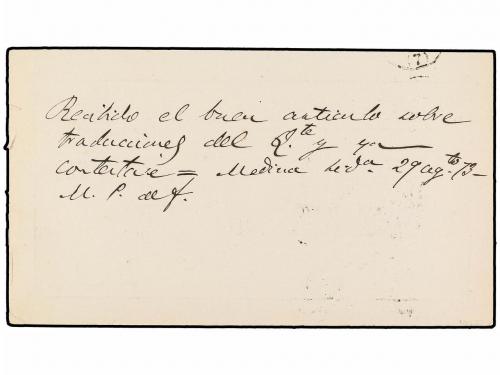 (7)
Recibido el buen articulo sobre
traducciones del Q.te y ya
contestaré = Medina Sid.a 29 ag.to 73 –
M. P. de f.